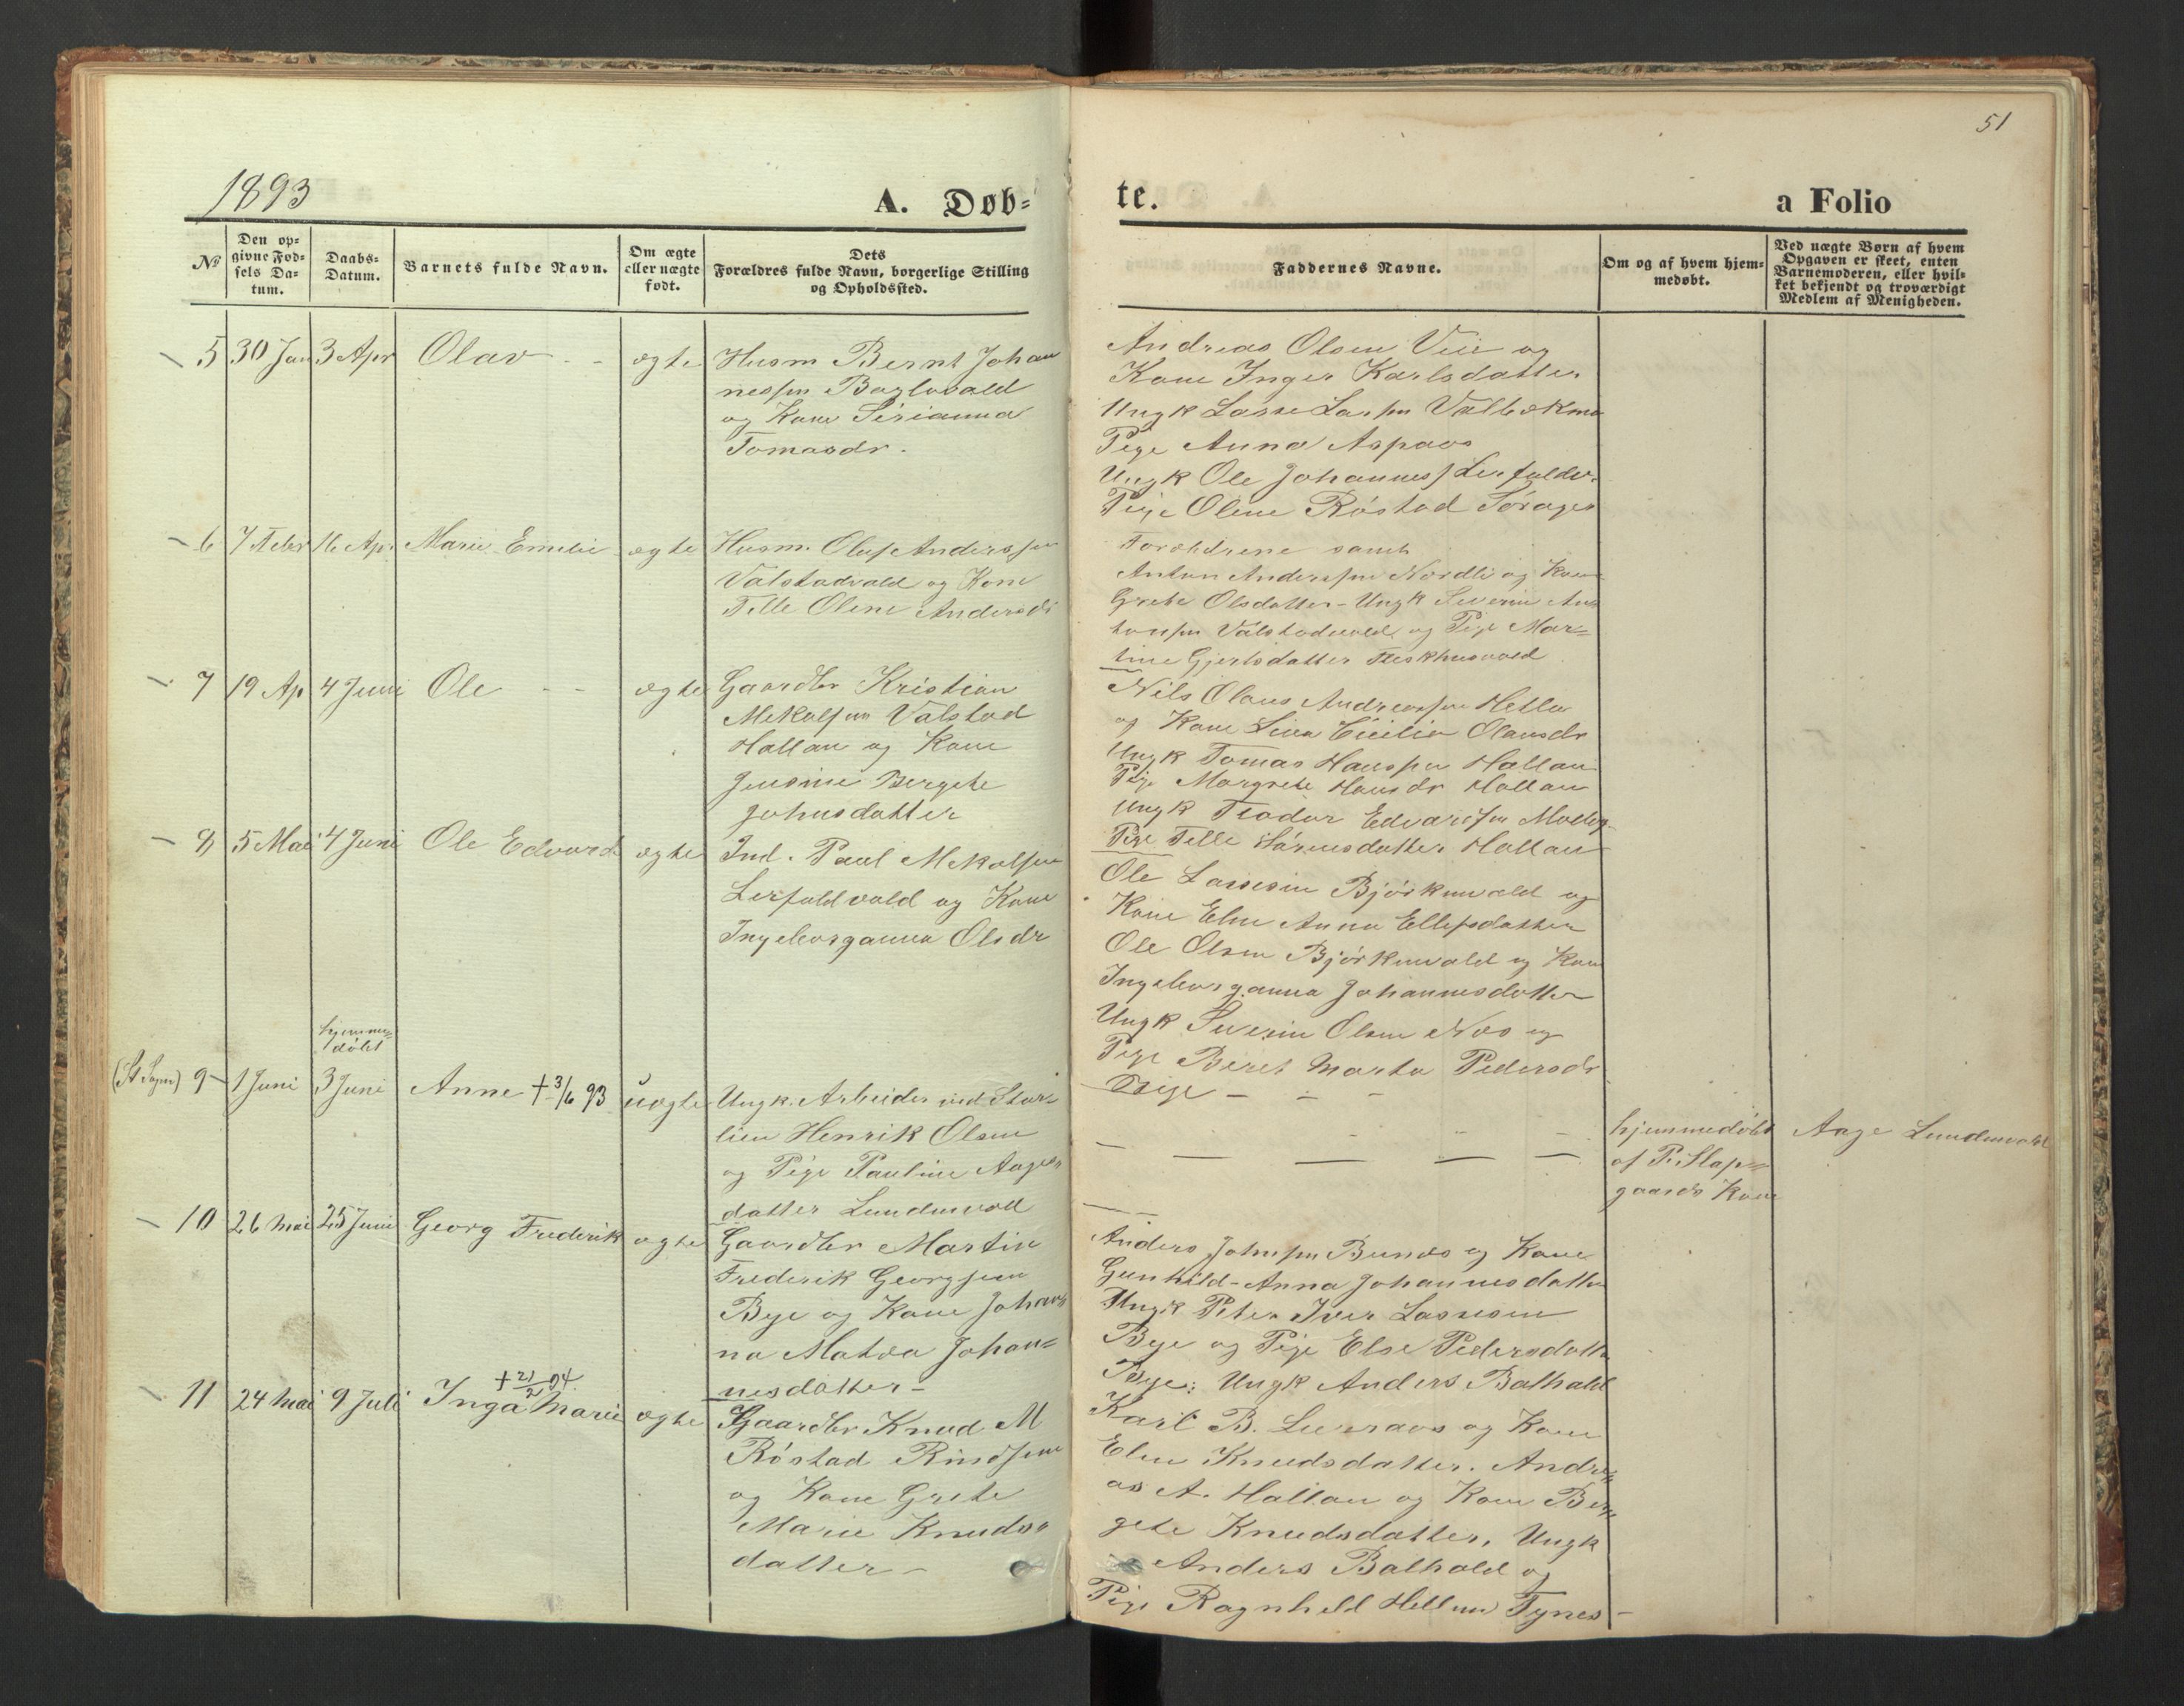 51
1893
A. Døb=
te.
a Folio
№
Den op=
givne Fød=
sels Da=
tum.
Daabs=
Datum.
Barnets fulde Navn.
Om ægte
eller uægte
født.
Dets
Forældres fulde Navn, borgerlige Stilling
og Opholdssted.
Faddernes Navne.
Om og af hvem hjem=
medøbt.
Ved uægte Børn af hvem
Opgaven er skeet, enten
Barnemoderen, eller hvil=
ket bekjendt og troværdigt
Medlem af Menigheden.
5 30 Jan 3 Apr Olav ægte
Husm Bernt Johan
nessen
og Kone Sirianna
Tomasdr.
Andreas Olsen Veie og
Kone Inger Karlsdatter
Ungk Lasse
Pige Anna Aspaas
Ungk Ole Johannes
Pige Olene Røstad Sørager
6 7 Febr 16 Ap. Marie Emelie ægte
Husm. Oluf Anderssen
Valstadvald og Kone
Telle Oline Andersdr
Forældrene samt
Anton Anderssen Nordli og Kone
Grete Olsdatter - Ungk Severin An=
tonsen Valstadvald og Pige Mar=
tine Gjertsdatter
7 19 Ap 4 Juni Ole ægte
Gaardbr Kristian
Mekalsen Valstad
Hallan og Kone
Jensine Bergete
Johnsdatter
Nils Olaus Andreassen Hetlo
og Kone Lina Cicilia Olausdr
Ungk Tomas Hanssen Hallan
Pige Margrete Hansdr Hallan
Ungk Teodor Edvardsen
Pige Telle Sørensdatter Hallan
8 5 Mai 4 Juni Ole Edvard ægte
Ind. Paul Mekalsen
Lerfaldvald og Kone
Ingeborganna Olsdr
Ole Lassesen Bjørkenvald og
Kone Elen Anna Ellefsdatter
Ole Olsen Bjørkenvald og Kone
Ingeborganna Johannesdatter
Ungk Severin Olsen Næs og
Pige Beret Marta Pedersdr
hjemme=
døbt
9 1 Juni 3 Juni Anne + 3/6 93 uægte
Ungk. Arbeider ved Stor=
lien Henrik Olsen
og Pige Pauline Aages=
datter Lundenvald
hjemmedøbt
af P. Slap=
gaards Kone
Aage Lundenvald
10 26 Mai 25 Juni Georg Frederik ægte
Gaardbr Martin
Frederik Georgsen
Bye og Kone Johan=
na Matea Johan=
nesdatter -
Anders Johnsen Bunæs og Kone
Gunhild-Anna Johannesdatter
Ungk Peter Iver Lassesen
Bye og Pige Else Pedersdatter
Bye: Ungk Anders Balhald
+ 21/2 94
11 24 Mai 9 Juli Inga Marie ægte
Gaardbr Knud M
Røstad Rindsem
og Kone Grete
Marie Knuds=
datter -
Karl B. Leeraas og Kone
Elen Knudsdatter. Andre=
as A. Hallan og Kone Ber=
gete Knudsdatter, Ungk
Anders Balhald og
Pige Ragnhild Hellem Tynes -